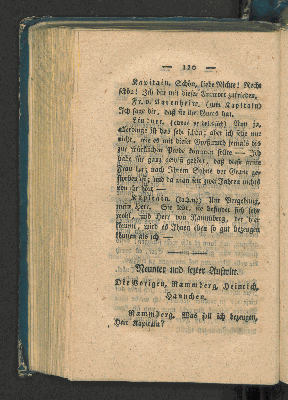 — 120 —
Kapitain. Schön, liebe Nichte! Recht
schön! Ich bin mit dieser Antwort zufrieden.
Fr. v. (zum Kapitain)
Ich sage dir, daß sie ihr Gutes hat.
Lindner. (etwas verdrießlich) Nun ja,
allerdings ist das sehr schön; aber ich sehe nur
nicht, wie es mit dieser Großmuth jemals bis
zur wirklichen Probe kommen sollte — Ich
habe sie ganz gewiß gehört, daß diese
Frau kurz nach Ihrem Sohne vor Gram ge-
storben ist, und da man seit zwei Jahren nichts
von ihr hört —
Kapitain. (lachend) Um Vergebung,
mein Herr. Sie lebt, sie befindet sich sehr
wohl, und Herr von Rammberg, der hier
kommt, wird es Ihnen eben so gut bezeugen
können als ich —
Neunter und lezter Auftritt.
Die Vorigen, Rammberg, Heinrich,
Hannchen.
Rammberg. Was soll ich bezeugen,
Herr Kapitain?